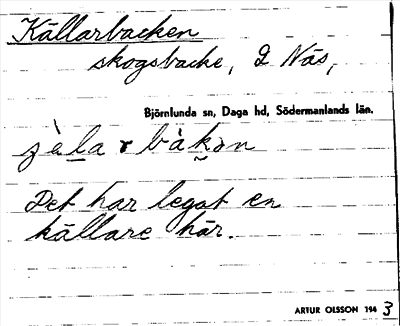 Källarbacken
skogsbacke, 2 Näs,
Björnlunda sn, Daga hd, Södermanlands län.
Det har legat en
källare här.
ARTUR OLSSON 194 3